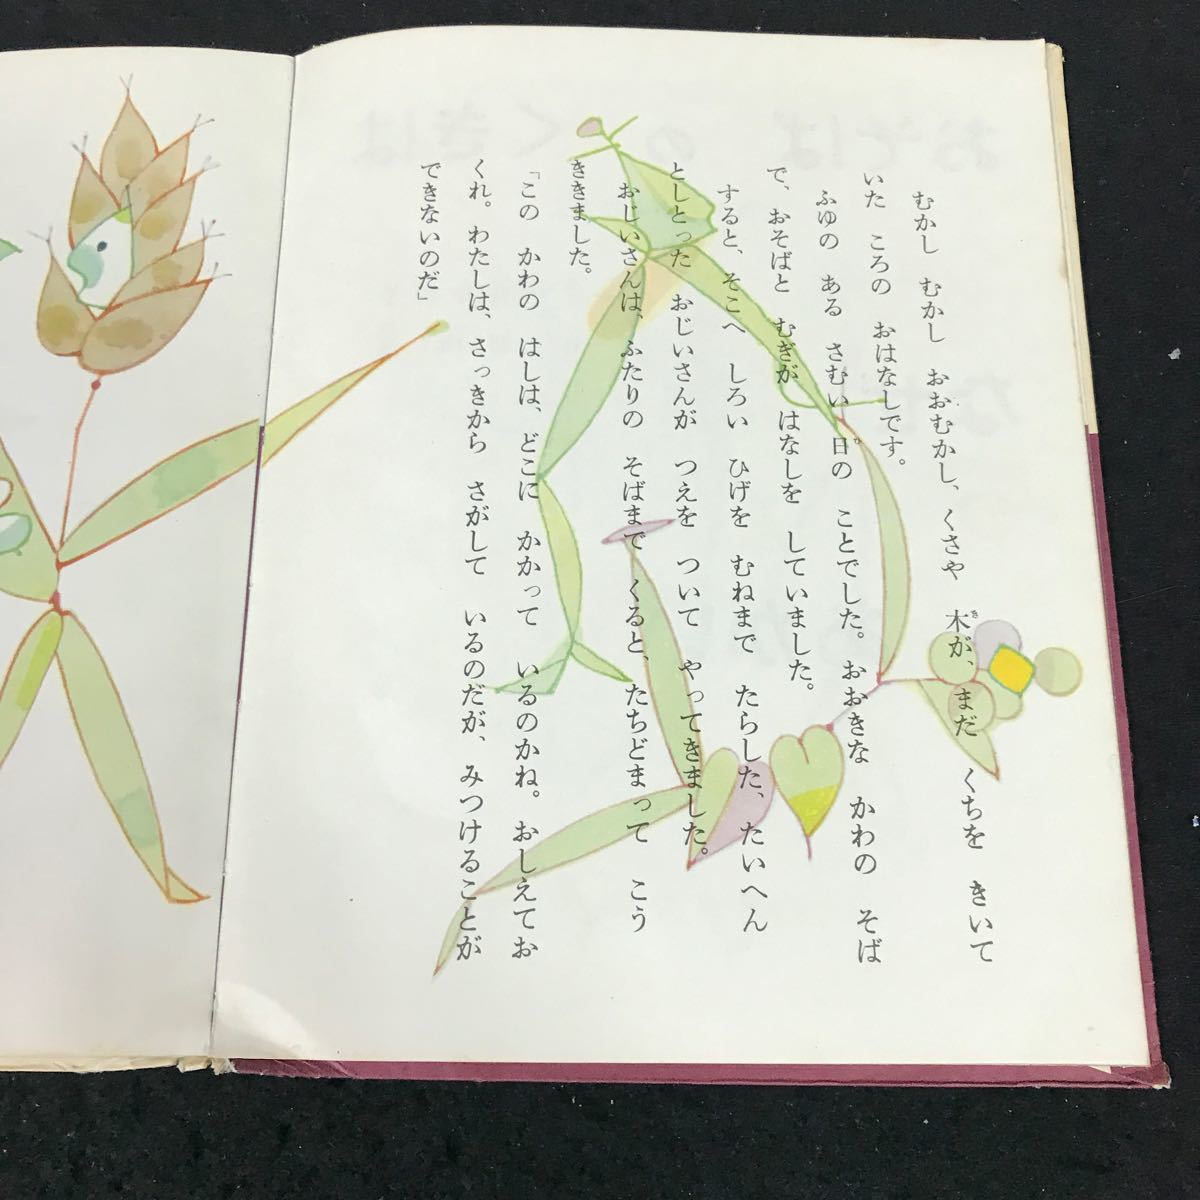 むかし　むかし　おおむかし、くさや　木が、まだ　くちを　きいて
いた　ころの　おはなしです。
ふゆの　ある　さむい　日の　ことでした。おおきな　かわの　そば
で、おそばと　むぎが　はなしを　していました。
すると、そこへ　しろい　ひげを　むねまで　たらした、たいへん
としとった　おじいさんが　つえを　ついて　やってきました。
おじいさんは、ふたりの　そばまで　くると、たちどまって　こう
ききました。
「この　かわの　はしは、どこに　かかって　いるのかね。おしえてお
くれ。わたしは、さっきから　さがして　いるのだが、みつけることが
できないのだ」